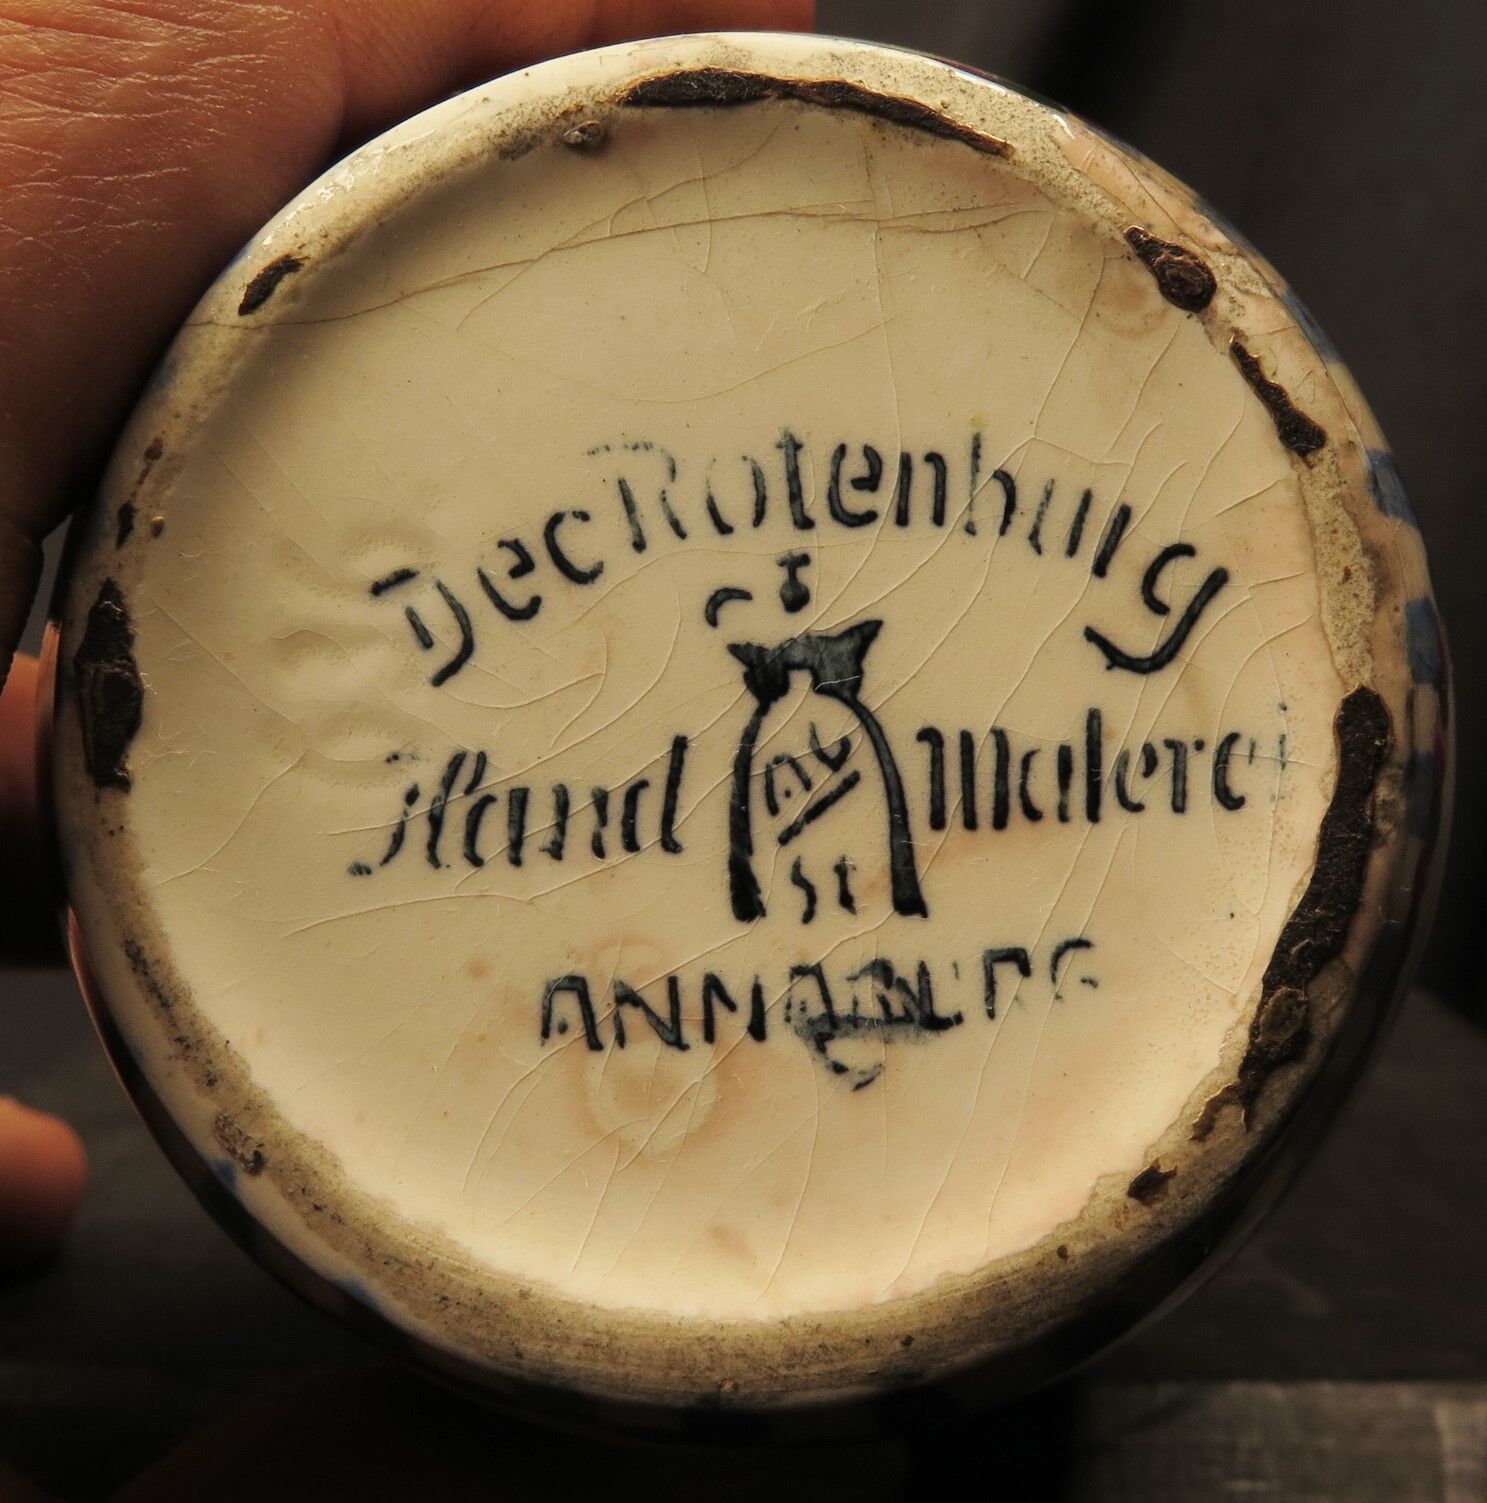 Dec Rotenburg
Hand Malerei
AB
St
ANNABURG